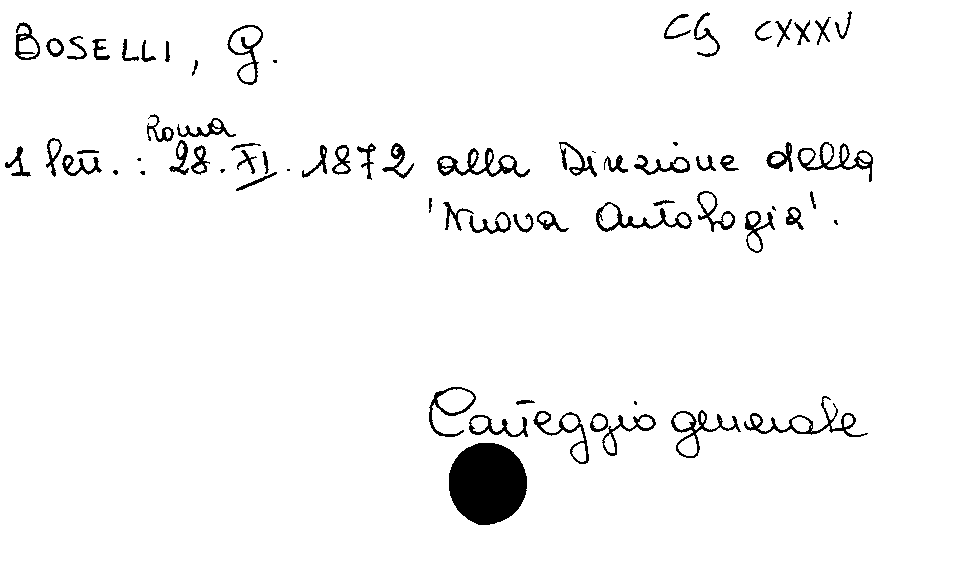 BOSELLI, G.
CG CXXXV
Roma
1 lett. : 28. XI. 1872 alla Direzione della
'Nuova Antologia'.
Carteggio generale